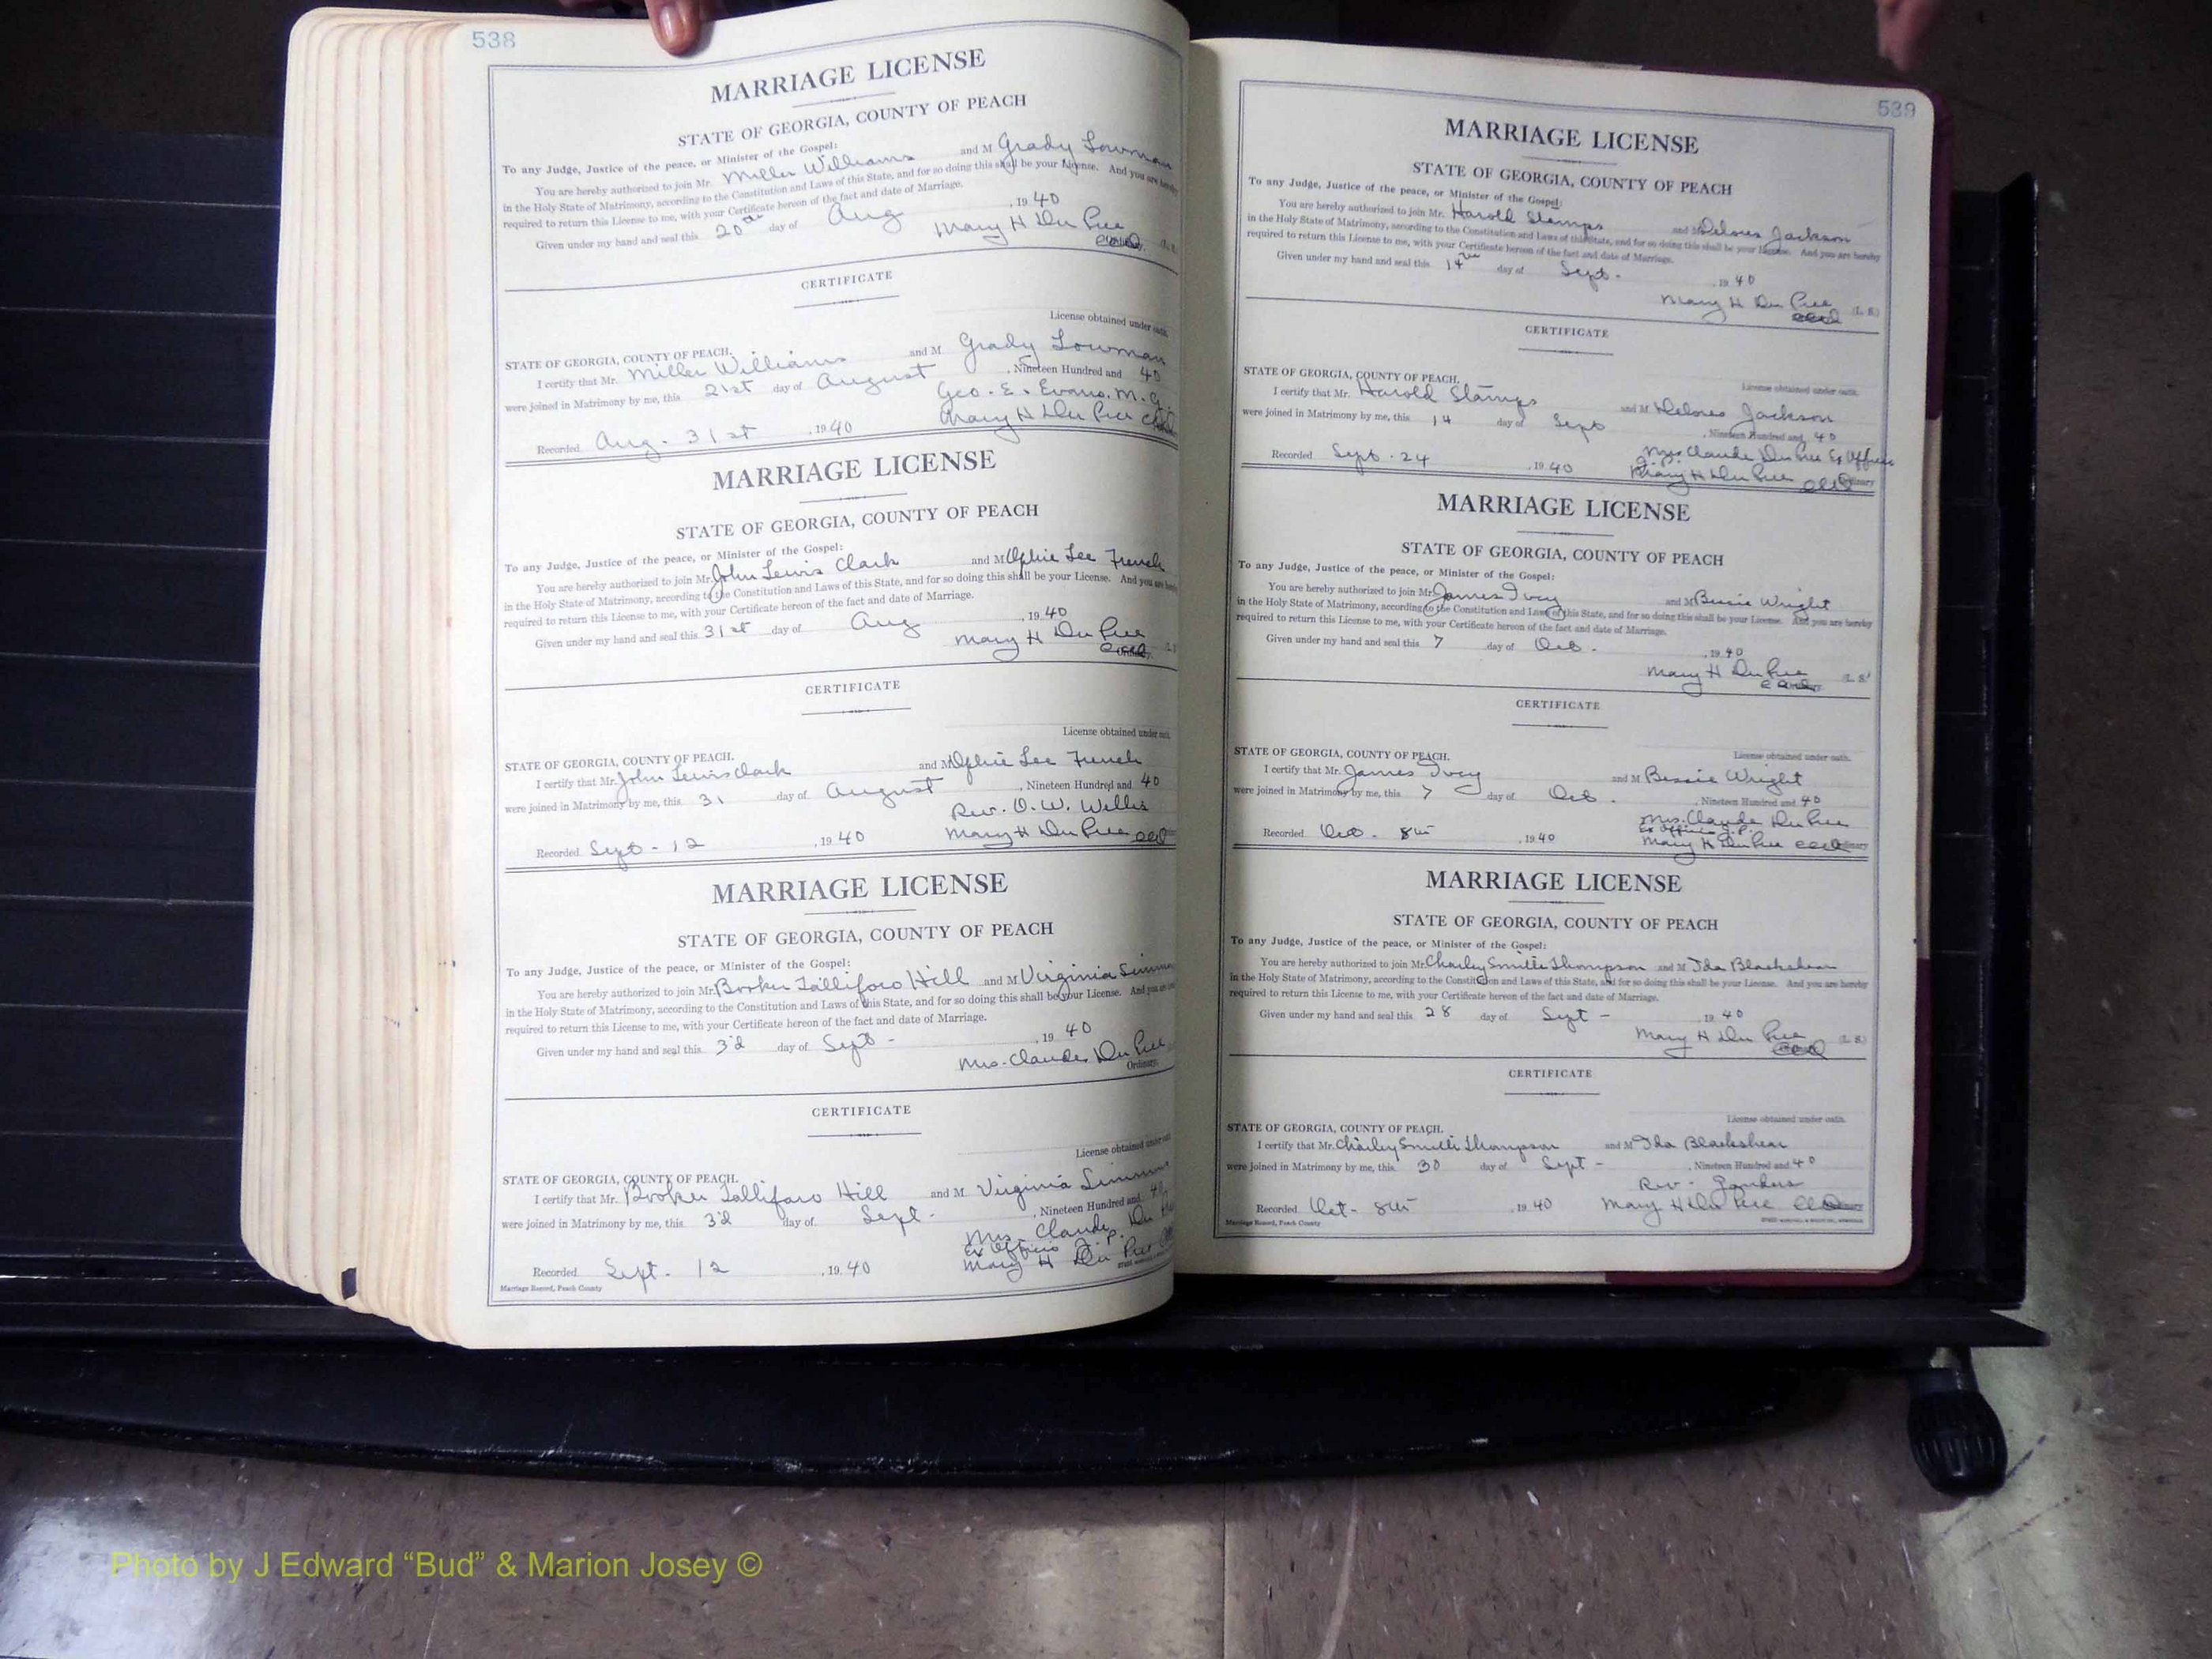 538
MARRIAGE LICENSE
STATE OF GEORGIA, COUNTY OF PEACH
To any Judge, Justice of the peace, or Minister of the Gospel:
You are hereby authorized to join Mr. Miller Williams and M Grady Lowman
in the Holy State of Matrimony, according to the Constitution and Laws of this State, and for so doing this shall be your License. And you are hereby
required to return this License to me, with your Certificate hereon of the fact and date of Marriage.
Given under my hand and seal this 20th day of Aug , 1940
Mary H Du Pree
CERTIFICATE
License obtained under oath.
STATE OF GEORGIA, COUNTY OF PEACH.
I certify that Mr. Miller Williams and M Grady Lowman
were joined in Matrimony by me, this 21st day of August , Nineteen Hundred and 40
Geo. E. Evans, M. G.
Recorded Aug. 31st , 1940 Mary H Du Pree
MARRIAGE LICENSE
STATE OF GEORGIA, COUNTY OF PEACH
To any Judge, Justice of the peace, or Minister of the Gospel:
You are hereby authorized to join Mr. John Lewis Clark and M Ophie Lee French
in the Holy State of Matrimony, according to the Constitution and Laws of this State, and for so doing this shall be your License. And you are hereby
required to return this License to me, with your Certificate hereon of the fact and date of Marriage.
Given under my hand and seal this 31st day of Aug , 1940
Mary H Du Pree
CERTIFICATE
License obtained under oath.
STATE OF GEORGIA, COUNTY OF PEACH.
I certify that Mr. John Lewis Clark and M Ophie Lee French
were joined in Matrimony by me, this 31 day of August , Nineteen Hundred and 40
Rev. O. W. Willis
Recorded Sept - 12 , 1940 Mary H Du Pree
MARRIAGE LICENSE
STATE OF GEORGIA, COUNTY OF PEACH
To any Judge, Justice of the peace, or Minister of the Gospel:
You are hereby authorized to join Mr. Booker Talliforo Hill and M Virginia
in the Holy State of Matrimony, according to the Constitution and Laws of this State, and for so doing this shall be your License. And you are
required to return this License to me, with your Certificate hereon of the fact and date of Marriage.
Given under my hand and seal this 3'd day of Sept - , 1940
Mrs. Claude Du Pree
Ordinary.
CERTIFICATE
License obtained under oath
STATE OF GEORGIA, COUNTY OF PEACH.
I certify that Mr. Booker Talliforo Hill and M. Virginia
were joined in Matrimony by me, this 3'd day of Sept. , Nineteen Hundred and 40
Mrs. Claude Du Pree
Ex Officio J. P.
Recorded Sept. 12 , 1940 Mary H Du Pree
Marriage Record, Peach County
539
MARRIAGE LICENSE
STATE OF GEORGIA, COUNTY OF PEACH
To any Judge, Justice of the peace, or Minister of the Gospel:
You are hereby authorized to join Mr. Harold Stamps and M Delores Jackson
in the Holy State of Matrimony, according to the Constitution and Laws of this State, and for so doing this shall be your License. And you are hereby
required to return this License to me, with your Certificate hereon of the fact and date of Marriage.
Given under my hand and seal this 14th day of Sept - , 1940
Mary H Du Pree
(L. S.)
CERTIFICATE
License obtained under oath.
STATE OF GEORGIA, COUNTY OF PEACH.
I certify that Mr. Harold Stamps and M Delores Jackson
were joined in Matrimony by me, this 14 day of Sept , Nineteen Hundred and 40
Mrs. Claude Du Pree Ex Officio
Recorded Sept. 24 , 1940 Mary H Du Pree
MARRIAGE LICENSE
STATE OF GEORGIA, COUNTY OF PEACH
To any Judge, Justice of the peace, or Minister of the Gospel:
You are hereby authorized to join Mr. James Ivey and M Bessie Wright
in the Holy State of Matrimony, according to the Constitution and Laws of this State, and for so doing this shall be your License. And you are hereby
required to return this License to me, with your Certificate hereon of the fact and date of Marriage.
Given under my hand and seal this 7 day of Oct. , 1940
Mary H Du Pree (L. S.)
CERTIFICATE
License obtained under oath.
STATE OF GEORGIA, COUNTY OF PEACH.
I certify that Mr. James Ivey and M Bessie Wright
were joined in Matrimony by me, this 7 day of Oct. , Nineteen Hundred and 40
Mrs. Claude Du Pree
Ex Officio J. P.
Recorded Oct. 8th , 1940 Mary H Du Pree
MARRIAGE LICENSE
STATE OF GEORGIA, COUNTY OF PEACH
To any Judge, Justice of the peace, or Minister of the Gospel:
You are hereby authorized to join Mr. Charley Smith Thompson and M Ida Blackshear
in the Holy State of Matrimony, according to the Constitution and Laws of this State, and for so doing this shall be your License. And you are hereby
required to return this License to me, with your Certificate hereon of the fact and date of Marriage.
Given under my hand and seal this 28 day of Sept - , 1940
Mary H Du Pree (L. S.)
CERTIFICATE
License obtained under oath.
STATE OF GEORGIA, COUNTY OF PEACH.
I certify that Mr. Charley Smith Thompson and M Ida Blackshear
were joined in Matrimony by me, this 30 day of Sept - , Nineteen Hundred and 40
Rev.
Recorded Oct - 8th , 1940 Mary H Du Pree
Marriage Record, Peach County
Photo by J Edward “Bud” & Marion Josey ©